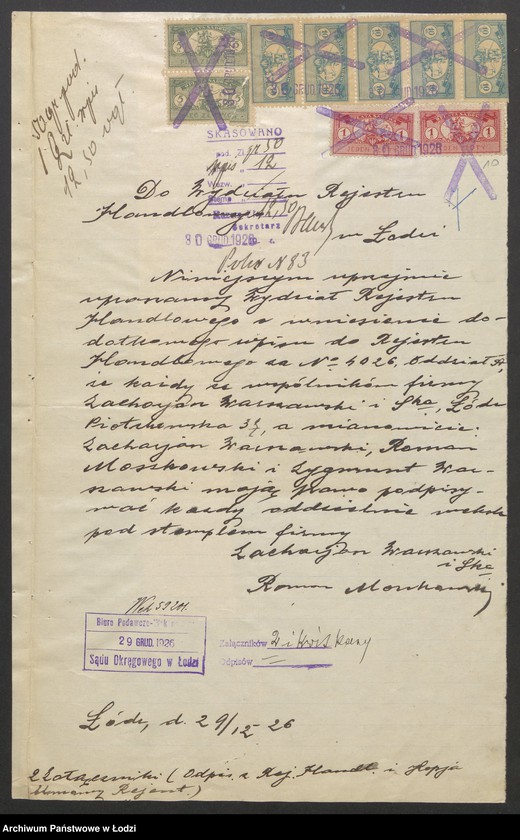 50 gr. pod.
12 zł. wpis
12,50 zł.
30 GRUD 1926
30 GRUD 1926
SKASOWANO
pod. Zł. gr 50
wpis " 12
Wezw. "
12,50
Sekretarz
30 GRUD 1926
10
Do Wydziału Rejestru
Handlowego
w Łodzi
Niniejszym uprzejmie
upraszamy Wydział Rejestru
Handlowego o wniesienie do-
datkowego wpisu do Rejestru
Handlowego za No 4026, Oddział A,
że każdy ze wspólników firmy
Zacharjan Warszawski i Ska, Łódź
Piotrkowska 37, a mianowicie:
Zacharjan Warszawski, Roman
Moszkowski i Zygmunt War-
szawski mają prawo podpisy-
wać każdy oddzielnie weksle
pod stemplem firmy
Zacharjan Warszawski
i Ska
Roman Moszkowski
Biuro Podawcze
29 GRUD. 1926
Sądu Okręgowego w Łodzi
Załączników 2 i kwit kasy
Odpisów —
Łódź, d. 29/12 26
2 Załączniki (Odpis z Rej. Handl. i Kopja
Umowy Rejent.)
Archiwum Państwowe w Łodzi